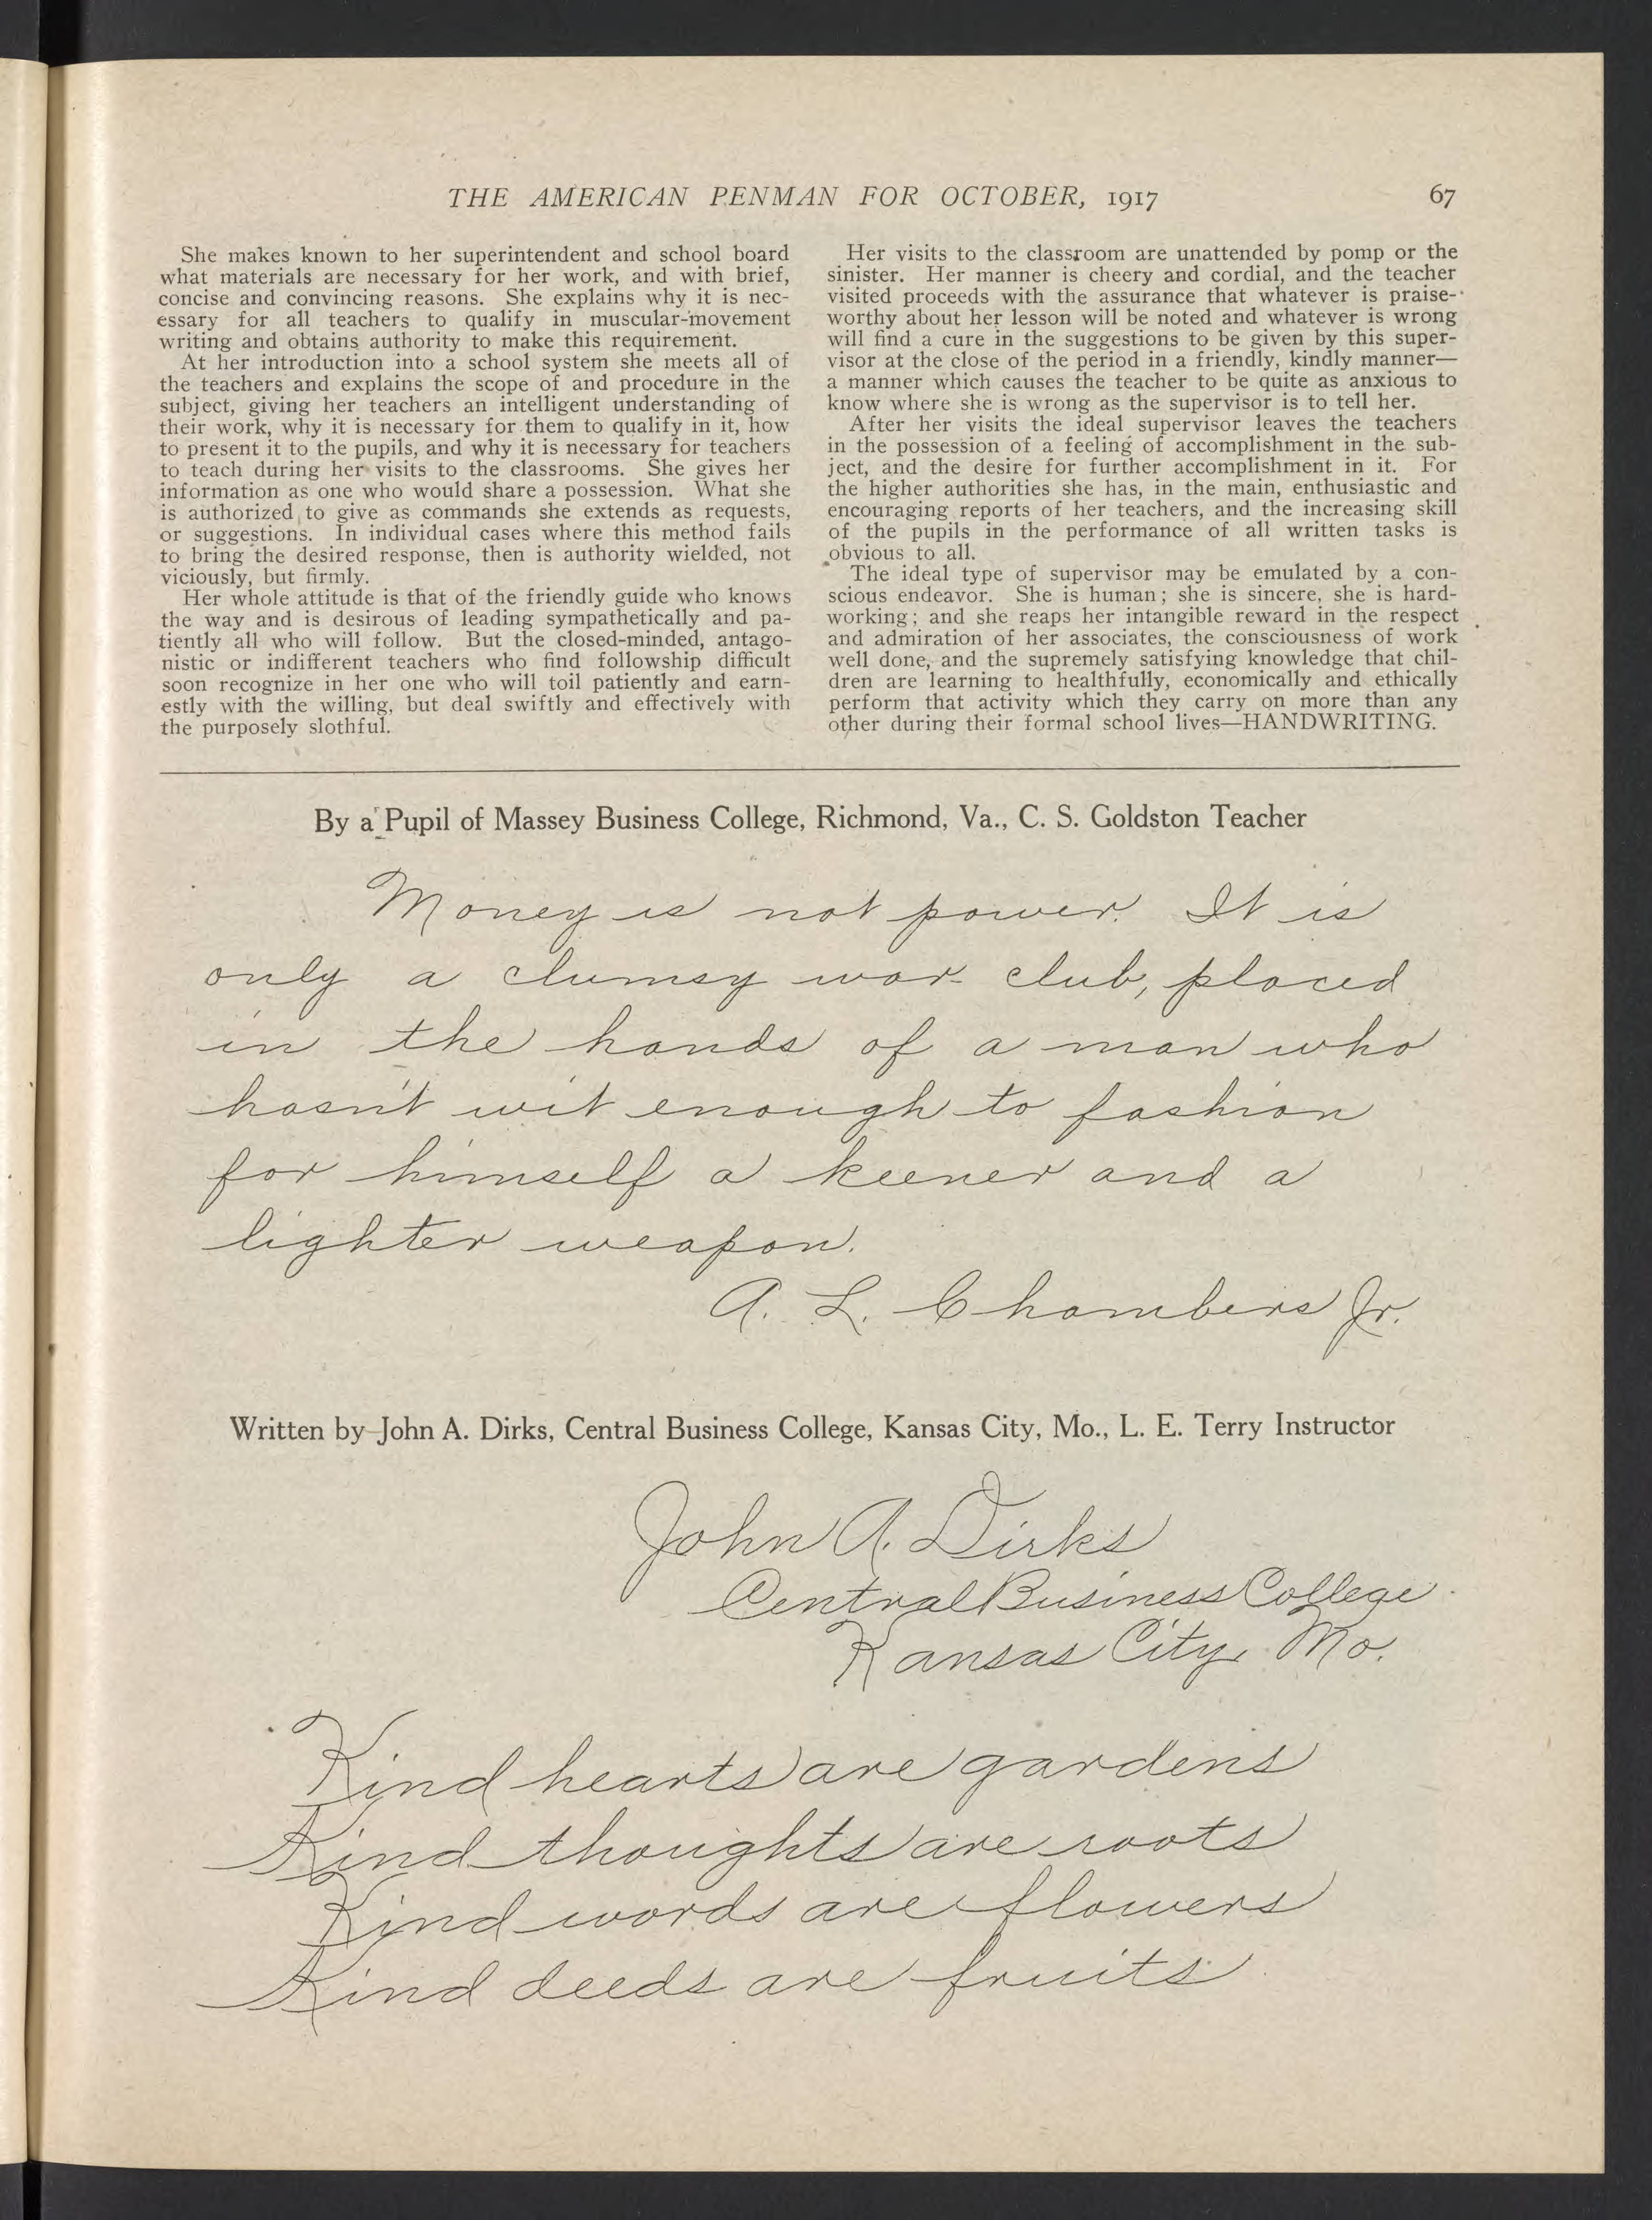 THE AMERICAN PENMAN FOR OCTOBER, 1917 67
She makes known to her superintendent and school board
what materials are necessary for her work, and with brief,
concise and convincing reasons. She explains why it is nec-
essary for all teachers to qualify in muscular-movement
writing and obtains authority to make this requirement.
At her introduction into a school system she meets all of
the teachers and explains the scope of and procedure in the
subject, giving her teachers an intelligent understanding of
their work, why it is necessary for them to qualify in it, how
to present it to the pupils, and why it is necessary for teachers
to teach during her visits to the classrooms. She gives her
information as one who would share a possession. What she
is authorized to give as commands she extends as requests,
or suggestions. In individual cases where this method fails
to bring the desired response, then is authority wielded, not
viciously, but firmly.
Her whole attitude is that of the friendly guide who knows
the way and is desirous of leading sympathetically and pa-
tiently all who will follow. But the closed-minded, antago-
nistic or indifferent teachers who find followship difficult
soon recognize in her one who will toil patiently and earn-
estly with the willing, but deal swiftly and effectively with
the purposely slothful.
Her visits to the classroom are unattended by pomp or the
sinister. Her manner is cheery and cordial, and the teacher
visited proceeds with the assurance that whatever is praise-
worthy about her lesson will be noted and whatever is wrong
will find a cure in the suggestions to be given by this super-
visor at the close of the period in a friendly, kindly manner—
a manner which causes the teacher to be quite as anxious to
know where she is wrong as the supervisor is to tell her.
After her visits the ideal supervisor leaves the teachers
in the possession of a feeling of accomplishment in the sub-
ject, and the desire for further accomplishment in it. For
the higher authorities she has, in the main, enthusiastic and
encouraging reports of her teachers, and the increasing skill
of the pupils in the performance of all written tasks is
obvious to all.
The ideal type of supervisor may be emulated by a con-
scious endeavor. She is human; she is sincere, she is hard-
working; and she reaps her intangible reward in the respect
and admiration of her associates, the consciousness of work
well done, and the supremely satisfying knowledge that chil-
dren are learning to healthfully, economically and ethically
perform that activity which they carry on more than any
other during their formal school lives—HANDWRITING.
By a Pupil of Massey Business College, Richmond, Va., C. S. Goldston Teacher
Money is not power. It is
only a clumsy war club, placed
in the hands of a man who
hasn't wit enough to fashion
for himself a keener and a
lighter weapon.
A. L. Chambers Jr.
Written by John A. Dirks, Central Business College, Kansas City, Mo., L. E. Terry Instructor
John A. Dirks
Central Business College
Kansas City, Mo.
Kind hearts are gardens
Kind thoughts are roots
Kind words are flowers
Kind deeds are fruits